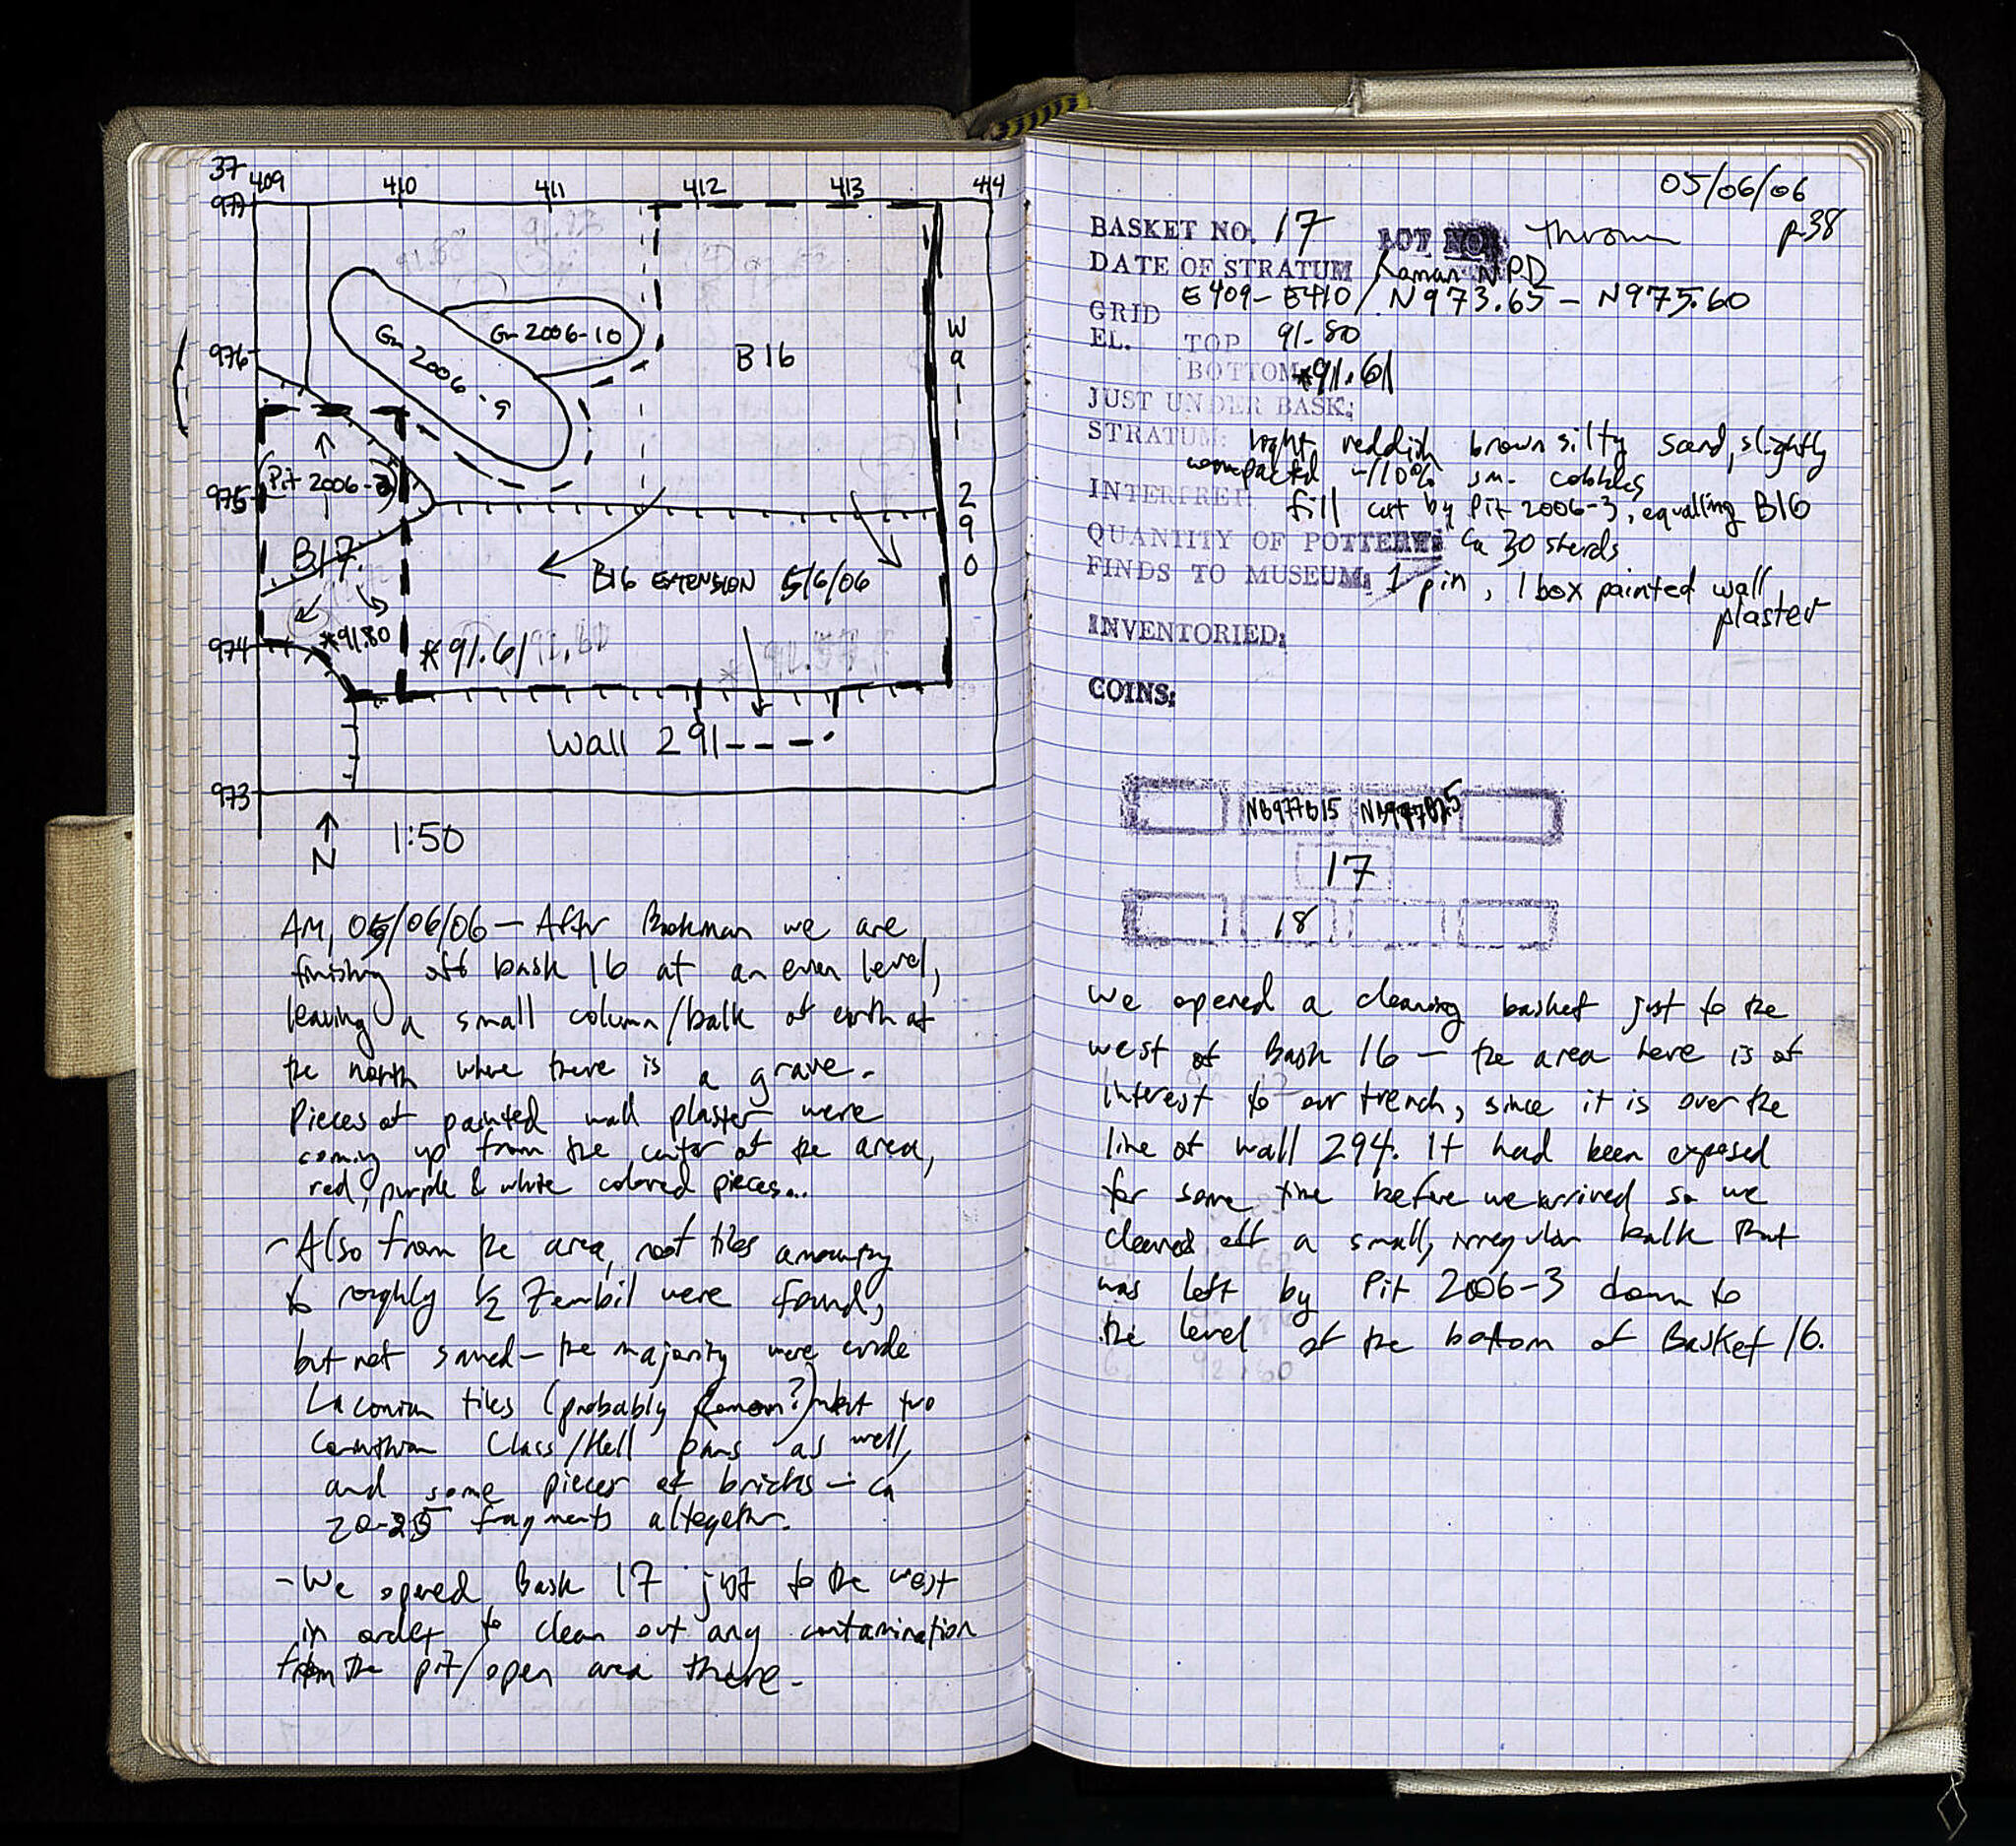 37
409 410 411 412 413 414
977
976
975
974
973
Gr 2006-9
Gr 2006-10
B16
Wall 290
(Pit 2006-3)
B17
B16 EXTENSION 5/6/06
*91.80
*91.61
Wall 291----
N
1:50
AM, 05/06/06 — After we are
finishing off bask 16 at an even level,
leaving a small column/balk of earth at
the north where there is a grave.
Pieces of painted wall plaster were
coming up from the center of the area,
red, purple & white colored pieces...
- Also from the area, roof tiles amounting
to roughly 1/2 Zembil were found,
but not saved - the majority were crude
Laconian tiles (probably Roman?) but two
Corinthian Class/Hell pans as well,
and some pieces of bricks - ca
20-25 fragments altogether.
- We opened Bask 17 just to the west
in order to clean out any contamination
from the pit/open area there.
05/06/06
p.38
BASKET NO. 17 LOT NO. thrown
DATE OF STRATUM Roman NPD
GRID E409-E410/N973.65-N975.60
EL. TOP 91.80
BOTTOM *91.61
JUST UNDER BASK:
STRATUM: light reddish brown silty sand, slightly
compacted ~10% sm. cobbles
INTERPRET: fill cut by Pit 2006-3, equalling B16
QUANTITY OF POTTERY: Ca 30 sherds
FINDS TO MUSEUM: 1 pin, 1 box painted wall
plaster
INVENTORIED:
COINS:
NB977B15
17
18
We opened a cleaning basket just to the
west of Bask 16 - the area here is of
interest to our trench, since it is over the
line of wall 294. It had been exposed
for some time before we arrived so we
cleaned off a small, irregular balk that
was left by Pit 2006-3 down to
the level of the bottom of Basket 16.